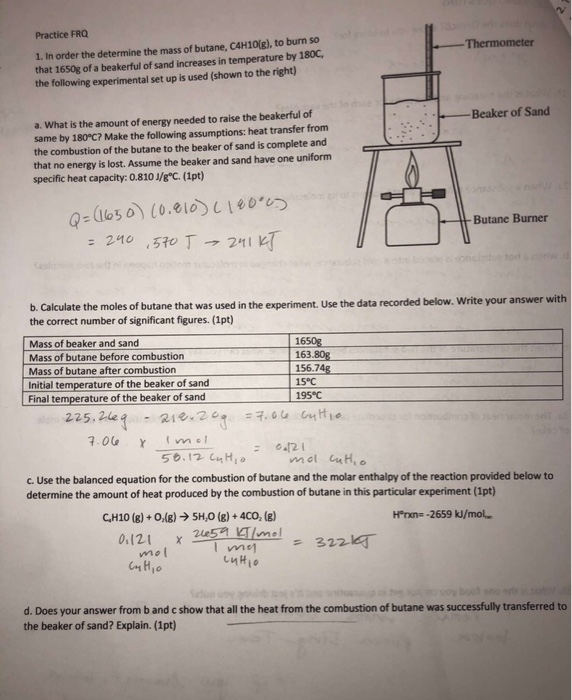 Practice FRQ
1. In order the determine the mass of butane, C4H10(g), to burn so
that 1650g of a beakerful of sand increases in temperature by 180C,
the following experimental set up is used (shown to the right)
Thermometer
Beaker of Sand
Butane Burner
a. What is the amount of energy needed to raise the beakerful of
same by 180°C? Make the following assumptions: heat transfer from
the combustion of the butane to the beaker of sand is complete and
that no energy is lost. Assume the beaker and sand have one uniform
specific heat capacity: 0.810 J/g°C. (1pt)
Q=(1650)(0.810)(180°C)
= 240,570 J → 241 kJ
b. Calculate the moles of butane that was used in the experiment. Use the data recorded below. Write your answer with
the correct number of significant figures. (1pt)
Mass of beaker and sand 1650g
Mass of butane before combustion 163.80g
Mass of butane after combustion 156.74g
Initial temperature of the beaker of sand 15°C
Final temperature of the beaker of sand 195°C
225.26g - 218.20g = 7.06 C4H10
7.06 x 1 mol = 0.121
58.12 C4H10 mol C4H10
c. Use the balanced equation for the combustion of butane and the molar enthalpy of the reaction provided below to
determine the amount of heat produced by the combustion of butane in this particular experiment (1pt)
C4H10 (g) + O2(g) → 5H2O (g) + 4CO2 (g) H°rxn= -2659 kJ/mol
0.121 x 2659 kJ/mol = 322kJ
mol 1 mol
C4H10 C4H10
d. Does your answer from b and c show that all the heat from the combustion of butane was successfully transferred to
the beaker of sand? Explain. (1pt)